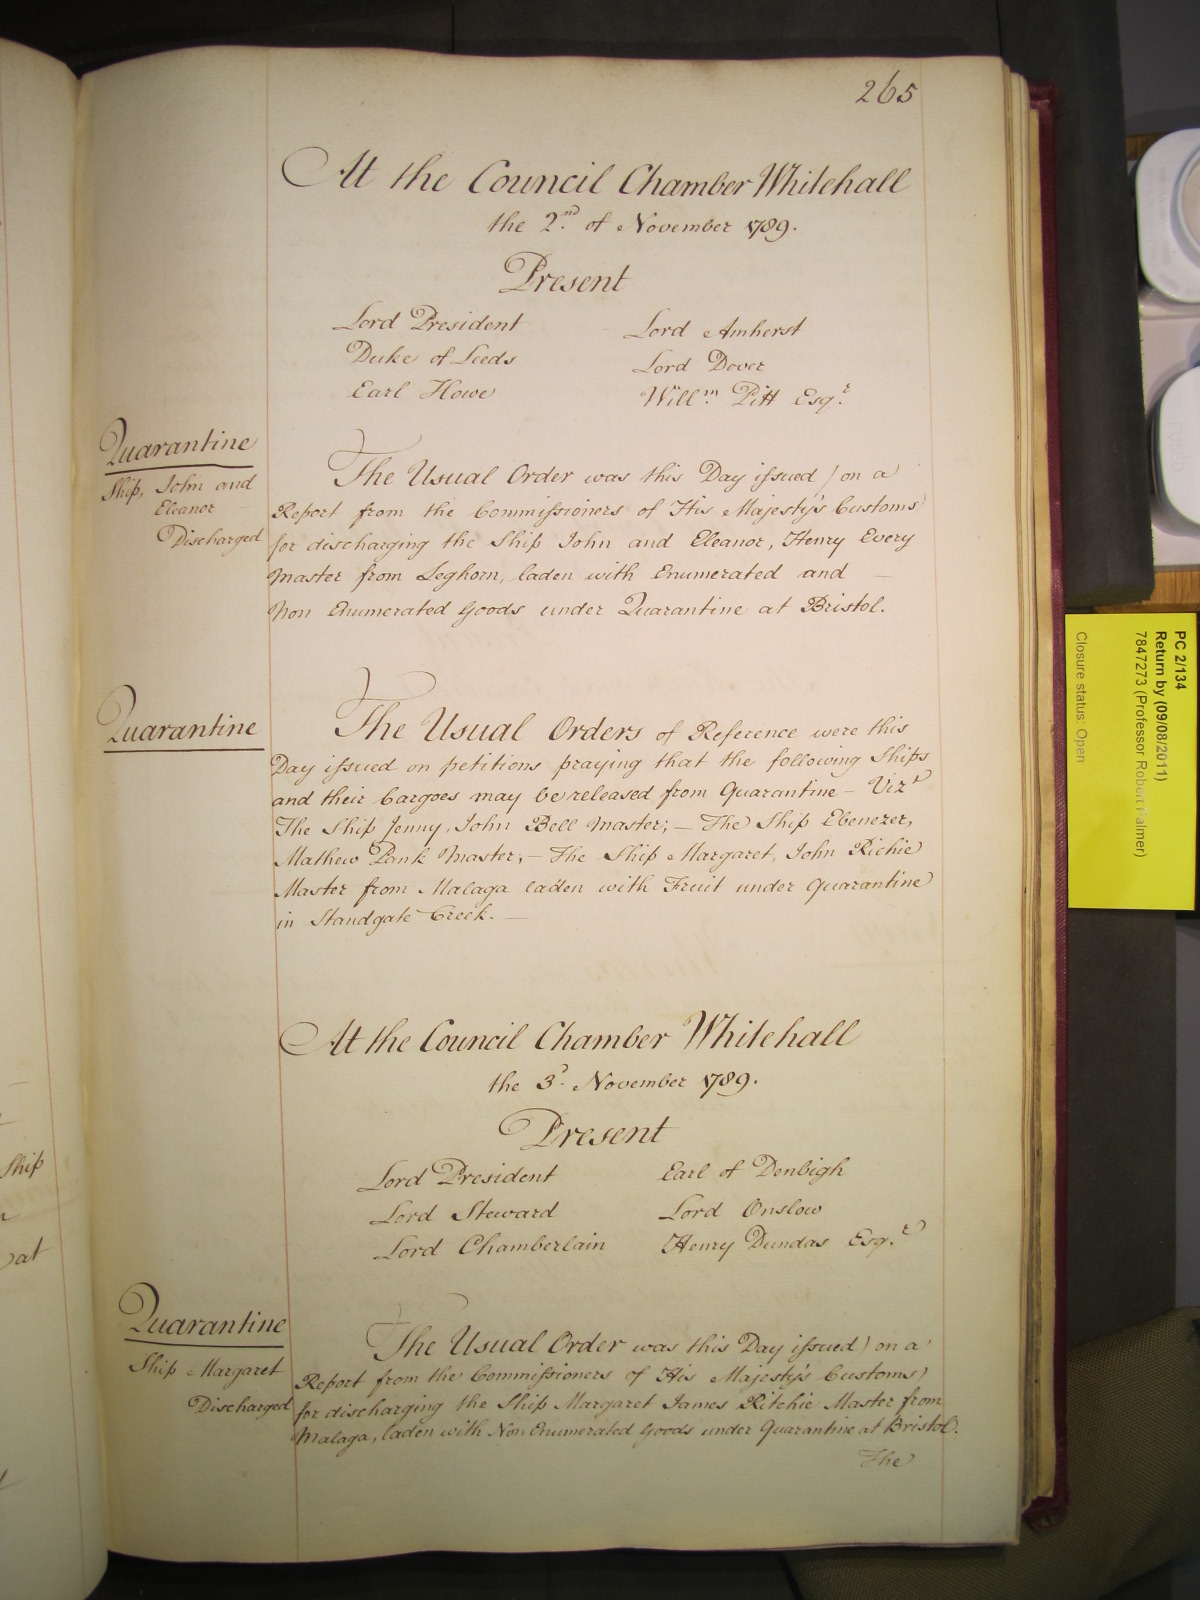 265
At the Council Chamber Whitehall
the 2nd. of November 1789.
Present
Lord President
Duke of Leeds
Earl Howe
Lord Amherst
Lord Dover
Willm. Pitt Esqr.
Quarantine
Ship, John and
Eleanor
Discharged
The Usual Order was this Day issued) on a
Report from the Commissioners of His Majesty's Customs)
for discharging the Ship John and Eleanor, Henry Every
Master from Leghorn, laden with Enumerated and —
Non Enumerated Goods under Quarantine at Bristol.
Quarantine
The Usual Orders of Reference were this
Day issued on petitions praying that the following Ships
and their Cargoes may be released from Quarantine — Vizt
The Ship Jenny, John Bell Master; — The Ship Ebenezer,
Mathew Pank Master; — The Ship Margaret, John Richie
Master from Malaga laden with Fruit under Quarantine
in Standgate Creek. —
At the Council Chamber Whitehall
the 3d. November 1789.
Present
Lord President
Lord Steward
Lord Chamberlain
Earl of Denbigh
Lord Onslow
Henry Dundas Esqr.
Quarantine
Ship Margaret
Discharged
The Usual Order was this Day issued) on a
Report from the Commissioners of His Majesty's Customs)
for discharging the Ship Margaret James Ritchie Master from
Malaga, laden with Non Enumerated Goods under Quarantine at Bristol.
The
Ship
at
PC 2/134
Return by (09/08/2011)
7847273 (Professor Robert Palmer)
Closure status: Open